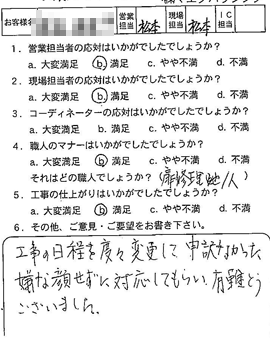 お客様名 営業担当 松本 現場担当 松本 IC担当
1．営業担当者の応対はいかがでしたでしょうか？
a. 大変満足 b. 満足 c. やや不満 d. 不満
2．現場担当者の応対はいかがでしたでしょうか？
a. 大変満足 b. 満足 c. やや不満 d. 不満
3．コーディネーターの応対はいかがでしたでしょうか？
a. 大変満足 b. 満足 c. やや不満 d. 不満
4．職人のマナーはいかがでしたでしょうか？
a. 大変満足 b. 満足 c. やや不満 d. 不満
それはどの職人でしょうか？（扉修理
5．工事の仕上がりはいかがでしたでしょうか？
a. 大変満足 b. 満足 c. やや不満 d. 不満
6．その他、ご意見・ご要望をお書き下さい。
工事の日程を度々変更して 申訳なかった
嫌な顔せずに対応してもらい 有難う
ございました。